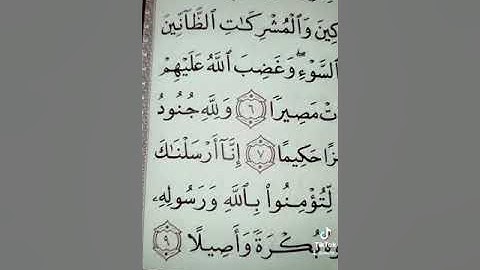 كِينَ وَٱلْمُشْرِكَٰتِ ٱلظَّآنِّينَ
ٱلسَّوْءِ ۖ وَغَضِبَ ٱللَّهُ عَلَيْهِمْ
تْ مَصِيرًا ٦ وَلِلَّهِ جُنُودُ
زًا حَكِيمًا ٧ إِنَّآ أَرْسَلْنَٰكَ
لِّتُؤْمِنُوا۟ بِٱللَّهِ وَرَسُولِهِۦ
وهُ بُكْرَةً وَأَصِيلًا ٩
TikTok